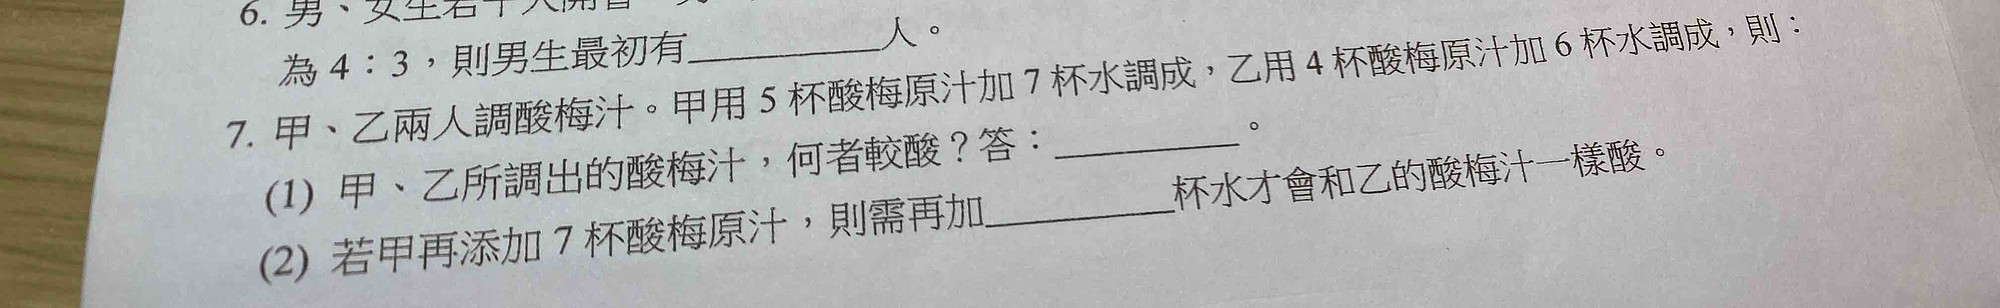 6. 男、女生若干人開會
為 4：3，則男生最初有＿＿＿＿＿人。
7. 甲、乙兩人調酸梅汁。甲用 5 杯酸梅原汁加 7 杯水調成，乙用 4 杯酸梅原汁加 6 杯水調成，則：
(1) 甲、乙所調出的酸梅汁，何者較酸？答：＿＿＿＿＿。
(2) 若甲再添加 7 杯酸梅原汁，則需再加＿＿＿＿＿杯水才會和乙的酸梅汁一樣酸。